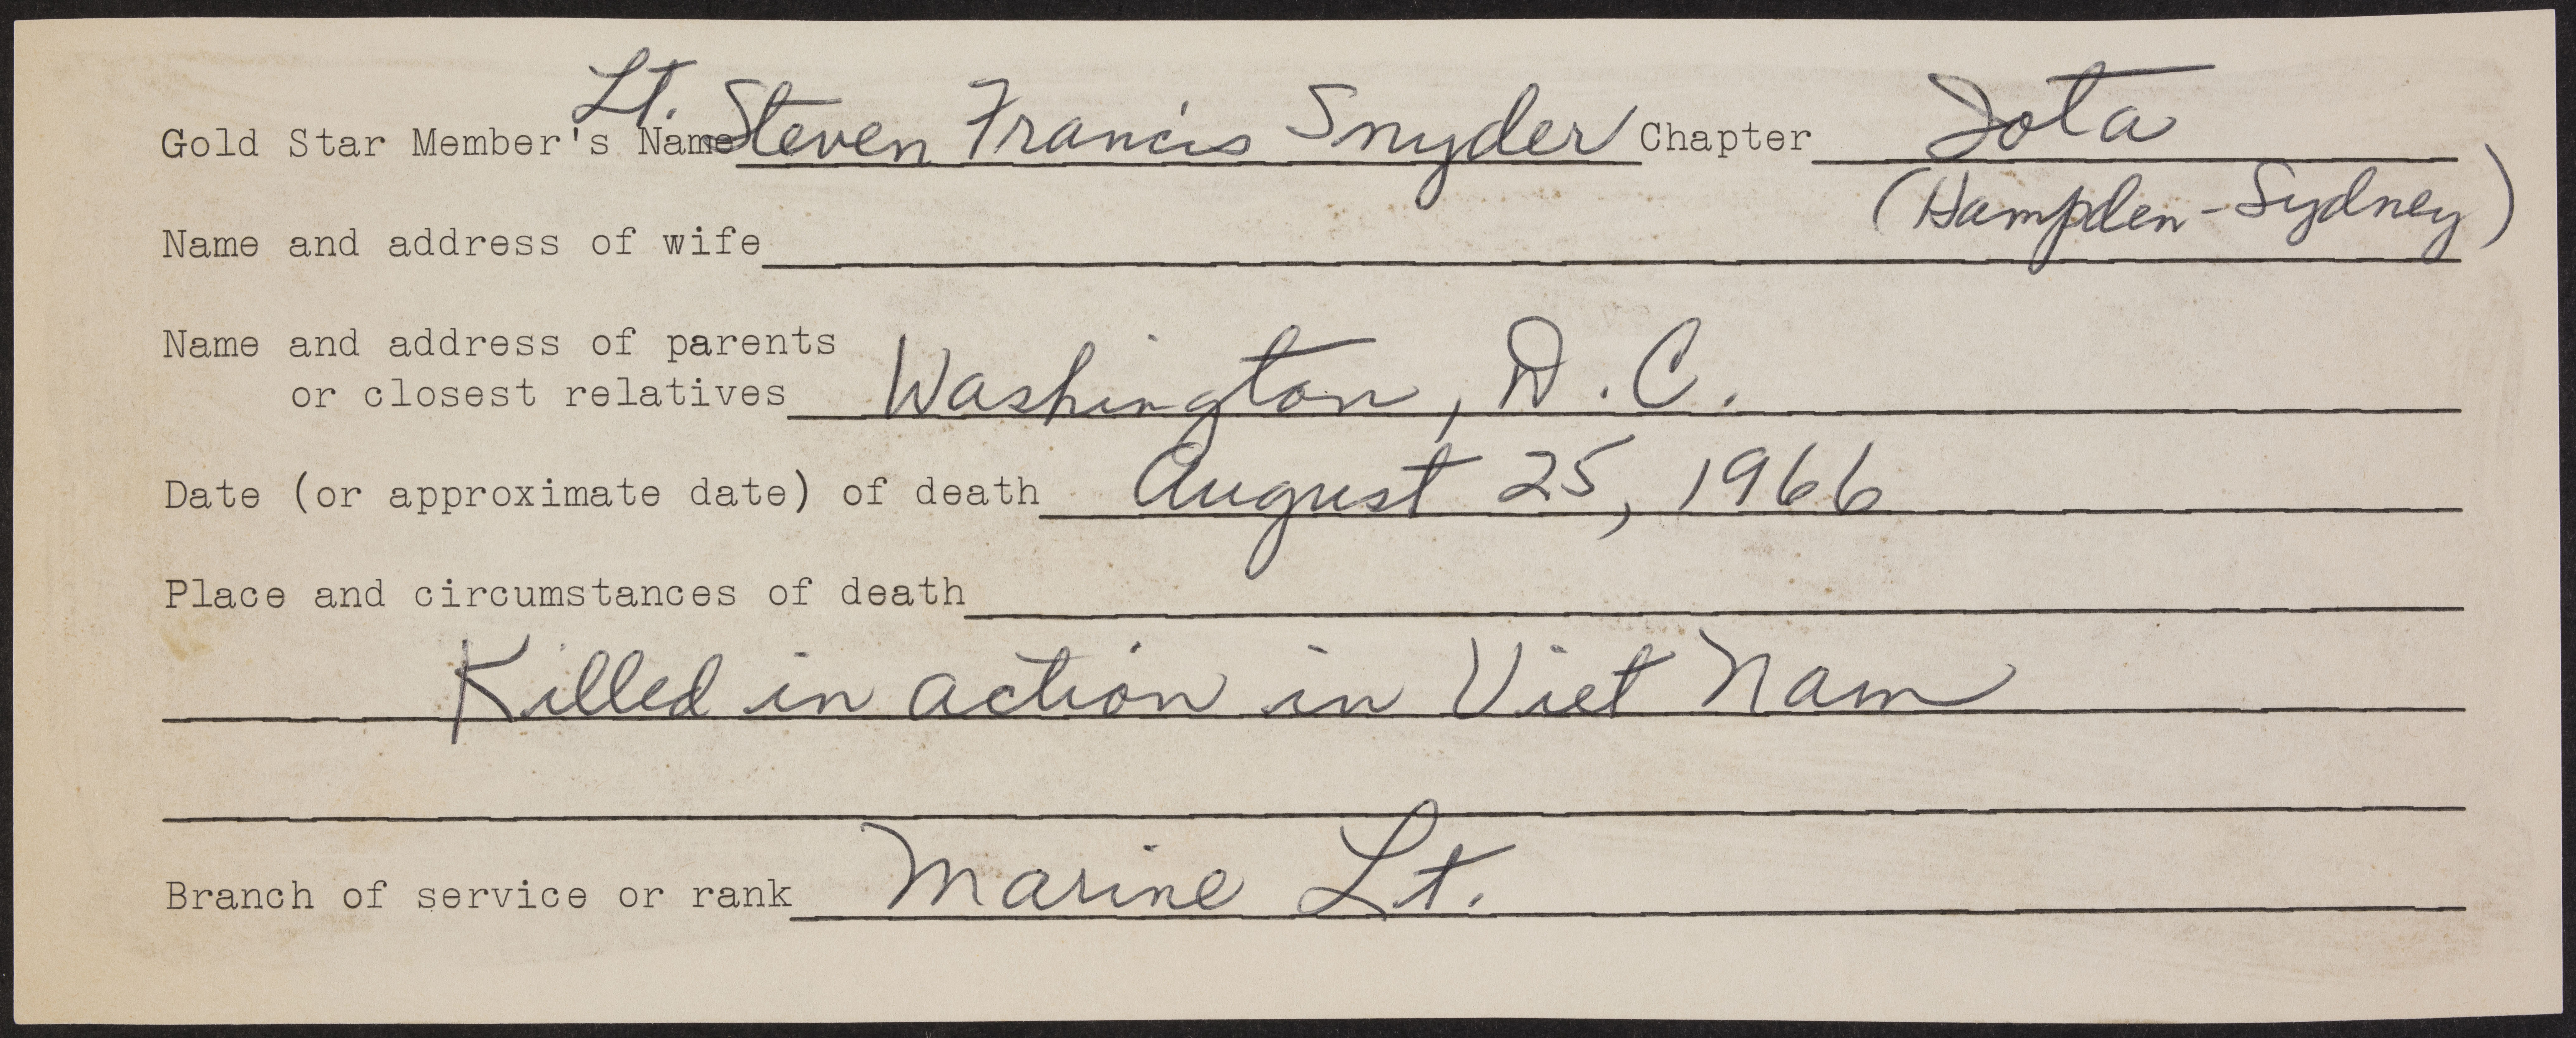 Lt.
Gold Star Member's Name Steven Francis Snyder Chapter Iota
(Hampden-Sydney)
Name and address of wife
Name and address of parents
or closest relatives Washington, D.C.
Date (or approximate date) of death August 25, 1966
Place and circumstances of death
Killed in action in Viet Nam
Branch of service or rank Marine Lt.